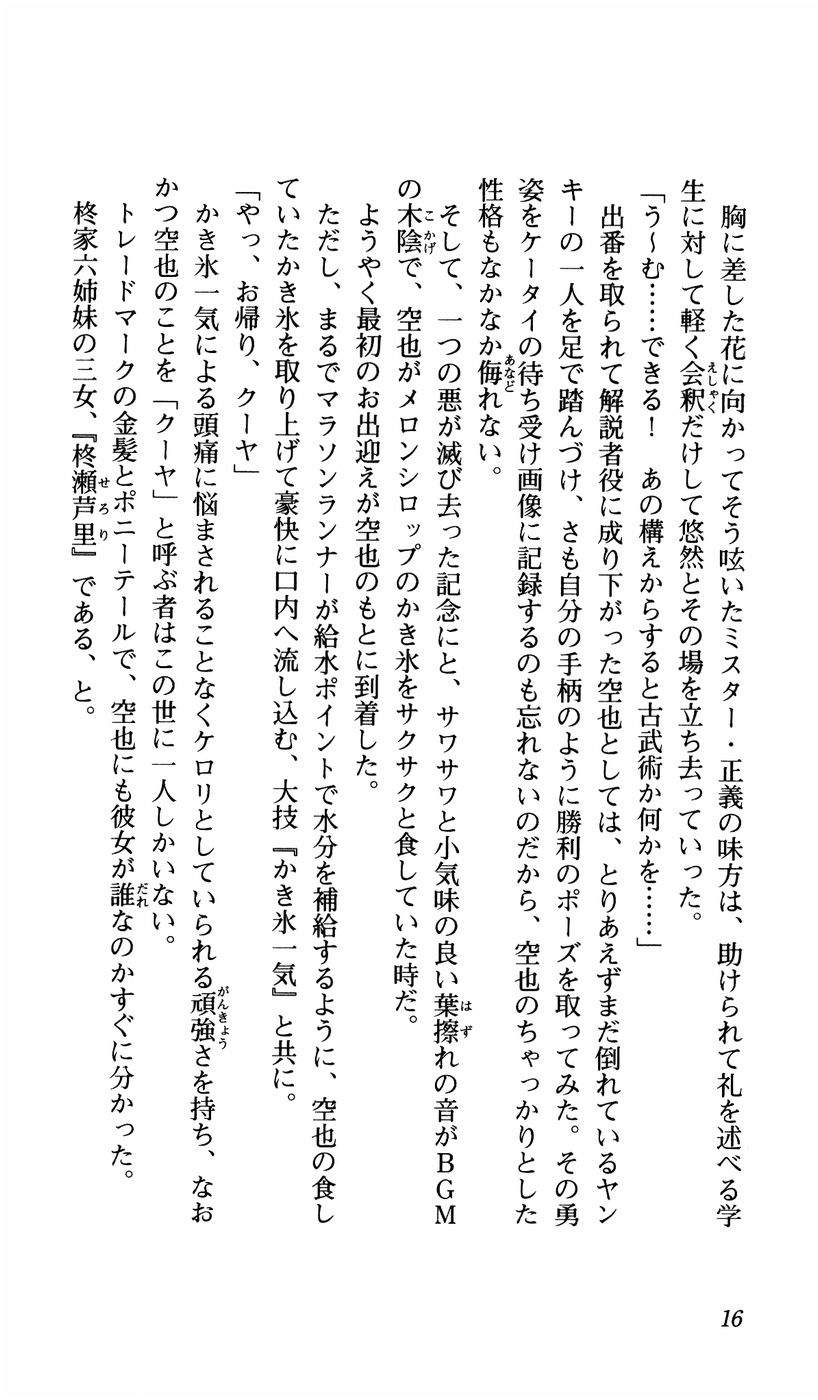 胸に差した花に向かってそう呟いたミスター・正義の味方は、助けられて礼を述べる学
生に対して軽く会釈だけして悠然とその場を立ち去っていった。
「う～む……できる！　あの構えからすると古武術か何かを……」
出番を取られて解説者役に成り下がった空也としては、とりあえずまだ倒れているヤン
キーの一人を足で踏んづけ、さも自分の手柄のように勝利のポーズを取ってみた。その勇
姿をケータイの待ち受け画像に記録するのも忘れないのだから、空也のちゃっかりとした
性格もなかなか侮れない。
そして、一つの悪が滅び去った記念にと、サワサワと小気味の良い葉擦れの音がＢＧＭ
の木陰で、空也がメロンシロップのかき氷をサクサクと食していた時だ。
ようやく最初のお出迎えが空也のもとに到着した。
ただし、まるでマラソンランナーが給水ポイントで水分を補給するように、空也の食し
ていたかき氷を取り上げて豪快に口内へ流し込む、大技『かき氷一気』と共に。
「やっ、お帰り、クーヤ」
かき氷一気による頭痛に悩まされることなくケロリとしていられる頑強さを持ち、なお
かつ空也のことを「クーヤ」と呼ぶ者はこの世に一人しかいない。
トレードマークの金髪とポニーテールで、空也にも彼女が誰なのかすぐに分かった。
柊家六姉妹の三女、『柊瀬芦里』である、と。
16